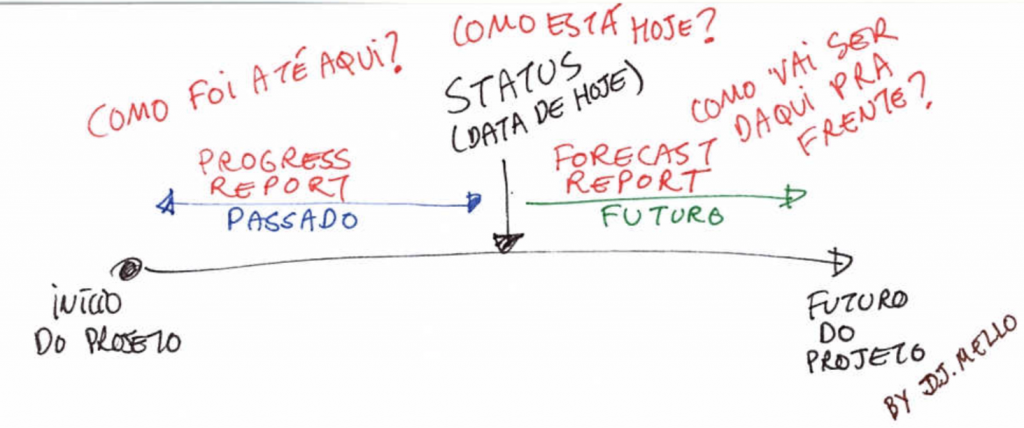 COMO FOI ATÉ AQUI?
COMO ESTÁ HOJE?
STATUS
(DATA DE HOJE)
COMO VAI SER
DAQUI PRA
FRENTE?
PROGRESS
REPORT
PASSADO
FORECAST
REPORT
FUTURO
INÍCIO
DO PROJETO
FUTURO
DO
PROJETO
BY DJ.MELLO